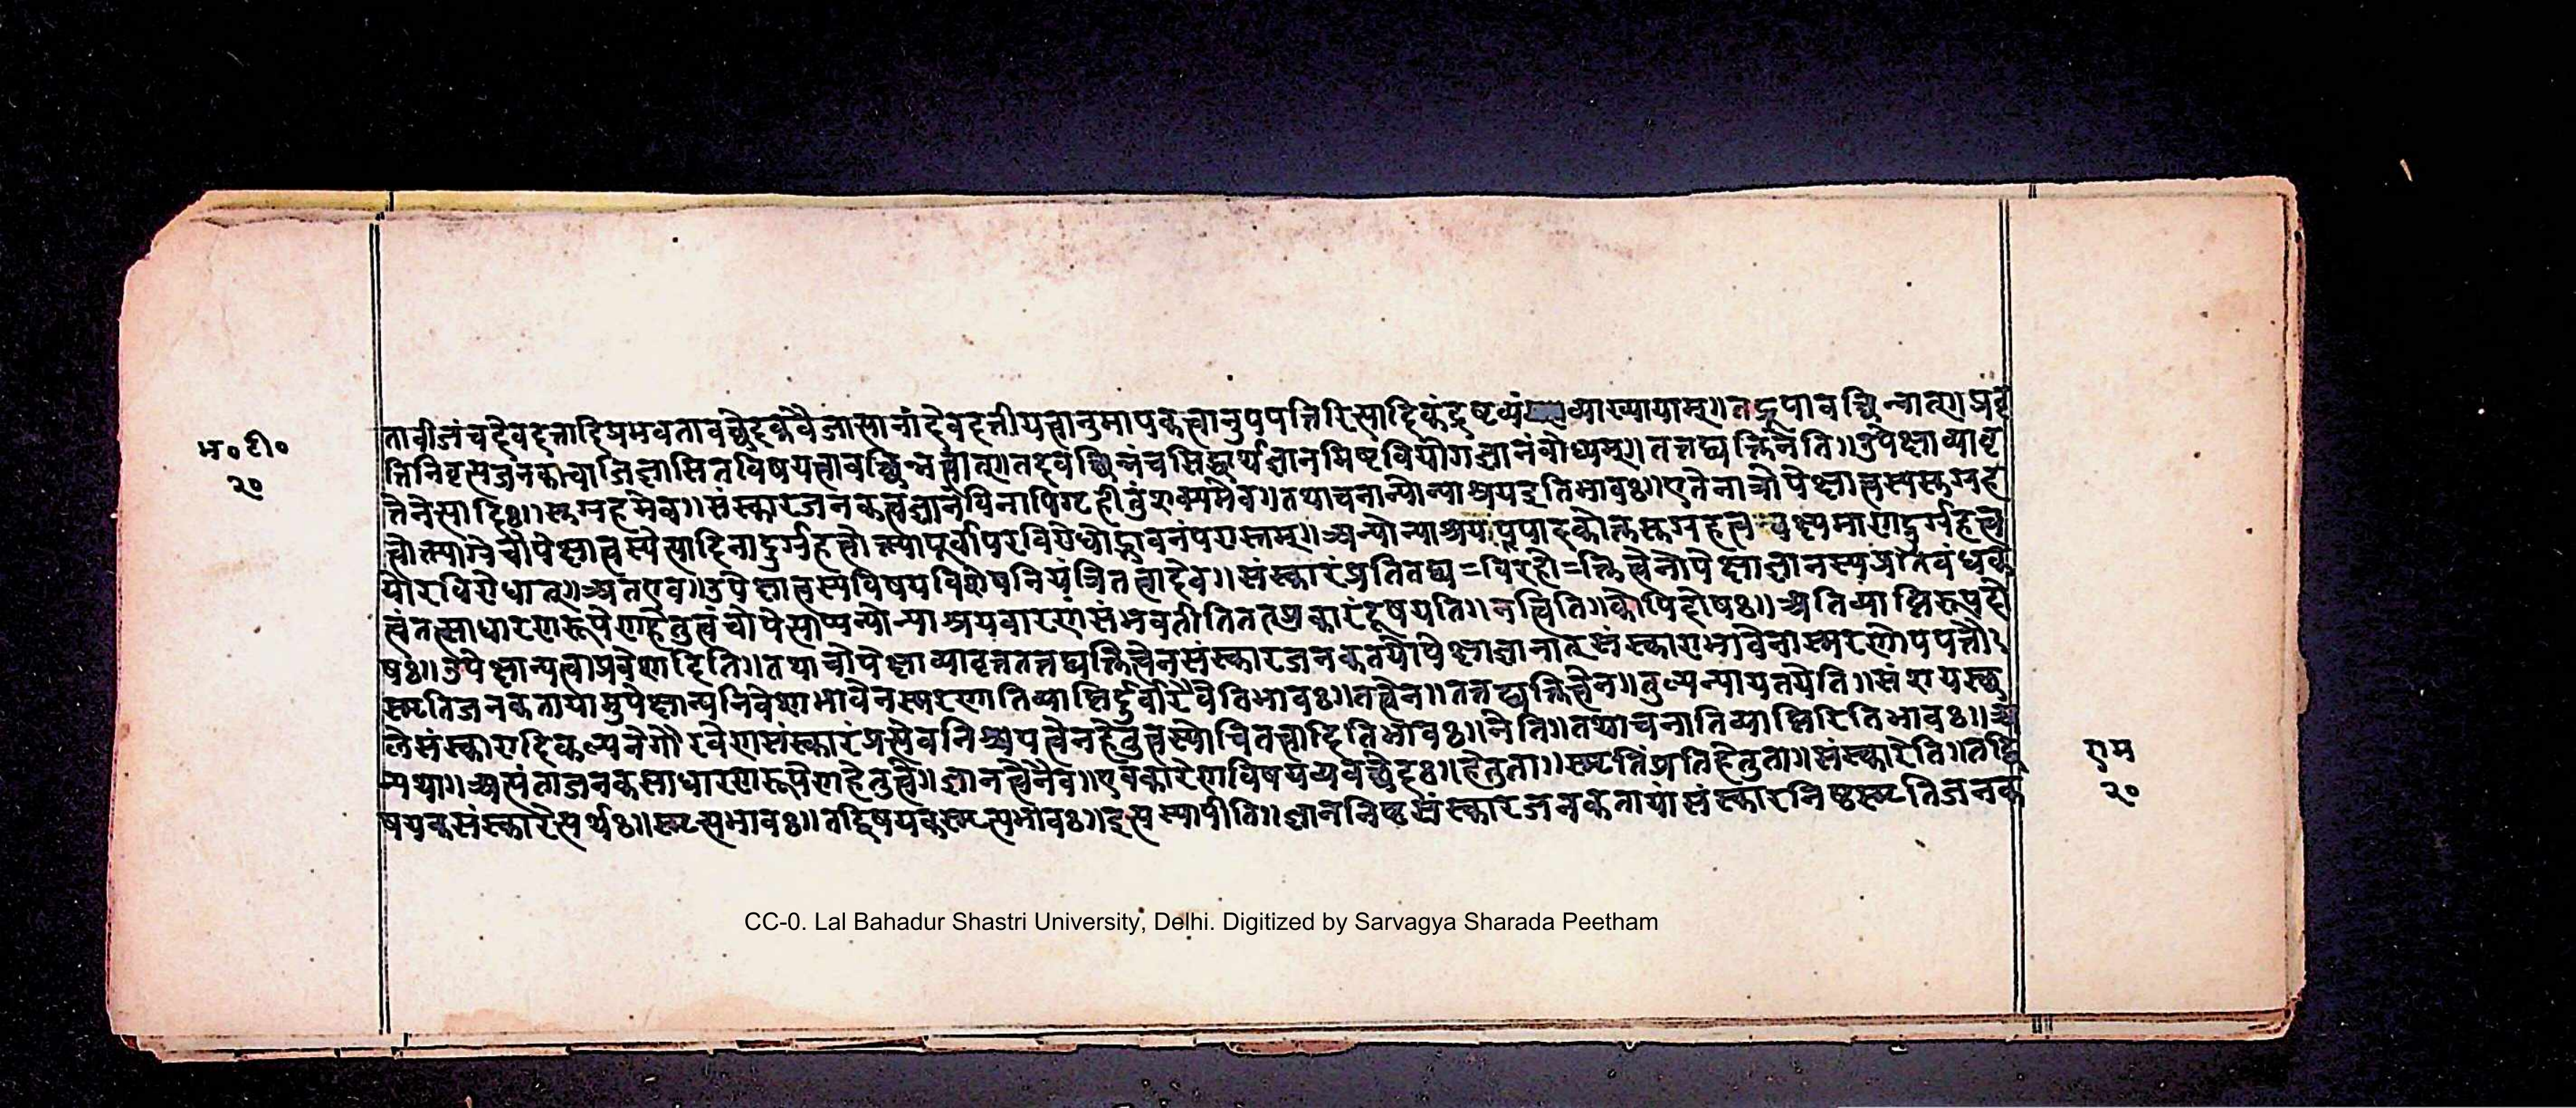 भ०टी०
२०
तावीजंचदेवदत्तादिप्रभवतावच्छेदकवैजात्यानांदैवदत्तीयत्वानुमापकत्वानुपपत्तिरित्यादिकंद्रष्टव्यं व्याख्यायाम्॥तद्रूपावच्छिन्नात्॥प्रवृ
त्तिनिवृत्यजनकाचाजिज्ञासितविषयत्वावच्छिन्नत्वात्॥तदवच्छिन्नंचसिद्धार्थज्ञानमिष्टवियोगज्ञानंबोध्यम्॥तत्तद्व्यक्तित्वेनेति॥उपेक्षाव्यावृ
त्तेनेत्यादिः॥सुग्रहमेव॥संस्कारजनकत्वज्ञानेविनापिग्रहीतुंशक्यमेव॥तथाचनान्योन्याश्रयइतिभावः॥एतेनाचोपेक्षात्वस्यसुग्रह
त्वोक्त्याग्रेचोपेक्षात्वस्येत्यादिनादुर्ग्रहत्वोक्त्यापूर्वापरविरोधोद्भावनंपरास्तम्॥अन्योन्याश्रया पपादकोक्तसुग्रहत्व वक्ष्यमाणदुर्ग्रहत्व
योरविरोधात्॥अतएव॥उपेक्षात्वस्यविषयविशेषनियंत्रितत्वादेव॥संस्कारंप्रतितद्व्य=विरहो=क्तित्वेनोपेक्षाज्ञानस्यप्रतिबंधक
त्वंतत्साधारणरूपेणहेतुत्वंचोपेत्याप्यन्योन्याश्रयवारणसंभवतीतितत्प्रकारंदूषयति॥नत्विति॥कोपिदोषः॥अतिव्याप्तिरूपदो
षः॥उपेक्षान्यत्वाप्रवेशादिति॥तथाचोपेक्षाव्यावृत्ततत्तद्व्यक्तित्वेनसंस्कारजनकतयोपेक्षाज्ञानात्संस्काराभावेनास्मरणोपपत्तौ
स्मृतिजनकतायामुपेक्षान्यनिवेशाभावेनस्मरणातिव्याप्तिर्दुर्वारैवेतिभावः॥तत्वेन॥तत्तद्व्यक्तित्वेन॥तुल्यन्यायतयेति॥संशयस्थ
लेसंस्कारादिकल्पनेगौरवेणसंस्कारंप्रत्येवनिश्चयत्वेनहेतुत्वस्योचितत्वादितिभावः॥नेति॥तथाचनातिव्याप्तिरितिभावः॥अ
न्यथा॥अत्यंताजनकसाधारणरूपेणहेतुत्वे॥ज्ञानत्वेनैव॥एवकारेणविषयव्यवच्छेदः॥हेतुता॥स्मृतिंप्रतिहेतुता॥संस्कारेति॥तद्वि
षयकसंस्कारेत्यर्थः॥स्मृत्यभावः॥तद्विषयकस्मृत्यभावः॥इत्यस्यापीति॥ज्ञाननिष्ठसंस्कारजनकतायांसंस्कारनिष्ठस्मृतिजनक
राम
२०
CC-0. Lal Bahadur Shastri University, Delhi. Digitized by Sarvagya Sharada Peetham